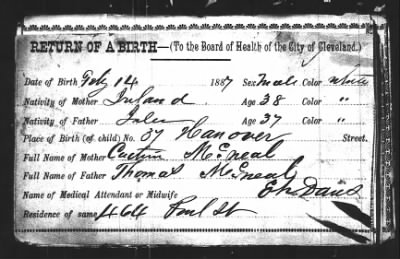 RETURN OF A BIRTH—(To the Board of Health of the City of Cleveland.)
Date of Birth Feby 14 1887 Sex Male Color White
Nativity of Mother Irland Age 38 Color "
Nativity of Father Age 37 Color "
Place of Birth (of child) No. 37 Hanover Street.
Full Name of Mother McNeal
Full Name of Father Thomas McNeal
Name of Medical Attendant or Midwife Davis
Residence of same 464 Perl St